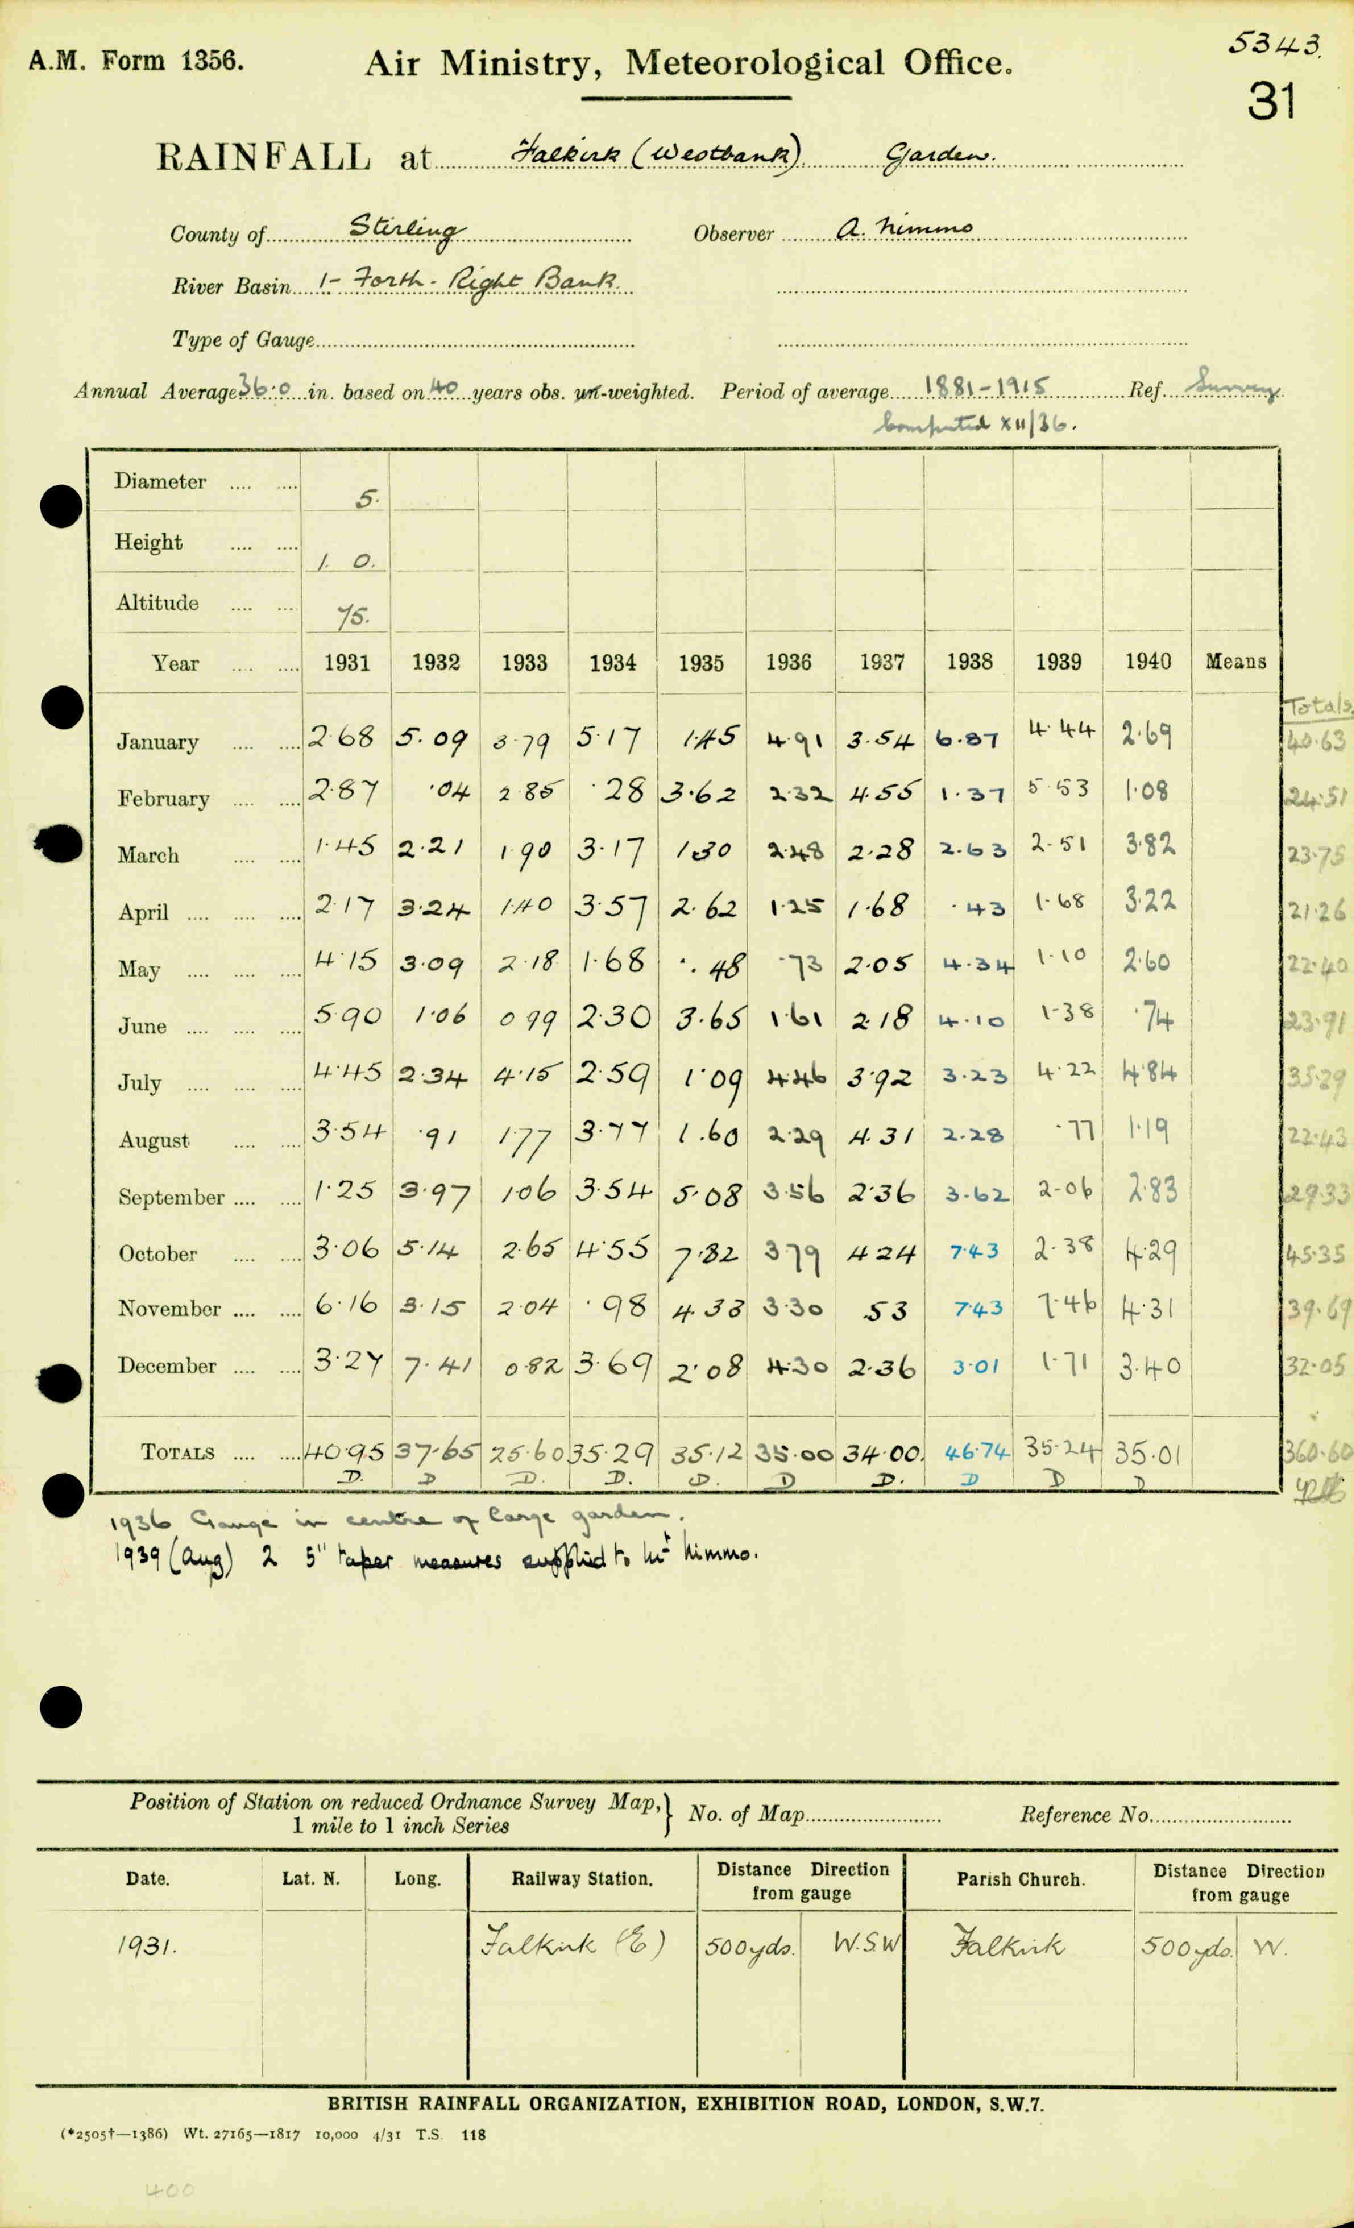 5343.
A.M. Form 1356. Air Ministry, Meteorological Office.
31
RAINFALL at Falkirk (Westbank) Garden.
County of Stirling Observer A. Nimmo
River Basin 1- Forth - Right Bank.
Type of Gauge
Annual Average 36.0 in. based on 40 years obs. un-weighted. Period of average 1881-1915 Ref. Survey
Computed XII/36.
Diameter 5.
Height 1. 0.
Altitude 75.
Year 1931 1932 1933 1934 1935 1936 1937 1938 1939 1940 Means
Totals
January 2.68 5.09 3.79 5.17 1.45 4.91 3.54 6.87 4.44 2.69 40.63
February 2.87 .04 2.85 .28 3.62 2.32 4.55 1.37 5.53 1.08 24.51
March 1.45 2.21 1.90 3.17 1.30 2.48 2.28 2.63 2.51 3.82 23.75
April 2.17 3.24 1.40 3.57 2.62 1.25 1.68 .43 1.68 3.22 21.26
May 4.15 3.09 2.18 1.68 .48 .73 2.05 4.34 1.10 2.60 22.40
June 5.90 1.06 0.99 2.30 3.65 1.61 2.18 4.10 1.38 .74 23.91
July 4.45 2.34 4.15 2.59 1.09 4.46 3.92 3.23 4.22 4.84 35.29
August 3.54 .91 1.77 3.77 1.60 2.29 4.31 2.28 .77 1.19 22.43
September 1.25 3.97 1.06 3.54 5.08 3.56 2.36 3.62 2.06 2.83 29.33
October 3.06 5.14 2.65 4.55 7.82 3.79 4.24 7.43 2.38 4.29 45.35
November 6.16 3.15 2.04 .98 4.33 3.30 .53 7.43 7.46 4.31 39.69
December 3.27 7.41 0.82 3.69 2.08 4.30 2.36 3.01 1.71 3.40 32.05
TOTALS 40.95 37.65 25.60 35.29 35.12 35.00 34.00. 46.74 35.24 35.01 360.60
D. D D. D. D. D D. D D D
1936 Gauge in centre of large garden.
1939 (Aug) 2 5" taper measures supplied to Mr Nimmo.
Position of Station on reduced Ordnance Survey Map, 1 mile to 1 inch Series } No. of Map Reference No.
Date. Lat. N. Long. Railway Station. Distance Direction from gauge Parish Church. Distance Direction from gauge
1931. Falkirk (E) 500yds. W.S.W Falkirk 500yds. W.
BRITISH RAINFALL ORGANIZATION, EXHIBITION ROAD, LONDON, S.W.7.
(*2505†—1386) Wt. 27165—1817 10,000 4/31 T.S. 118
400